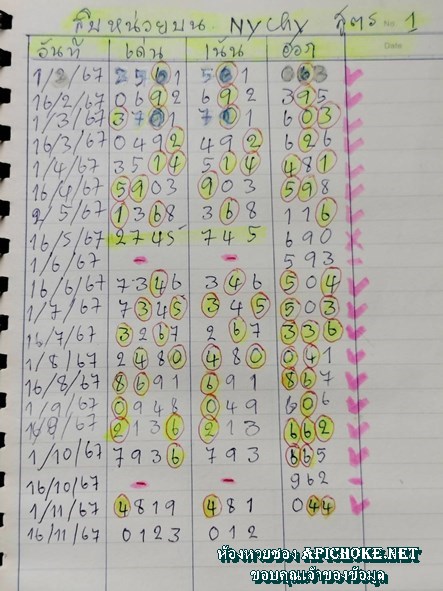 สิบหน่วยบน NyChy สูตร No. 1
Date
วันที่ เด่น เน้น ออก
1/2/67 2561 561 063
16/2/67 0692 692 395
1/3/67 3701 701 603
16/3/67 0492 492 626
1/4/67 3514 514 481
16/4/67 5903 903 598
2/5/67 1368 368 116
16/5/67 2745 745 690
1/6/67 - - 593 -
16/6/67 7346 346 504
1/7/67 7345 345 503
16/7/67 3267 267 336
1/8/67 2480 480 041
16/8/67 8691 691 867
1/9/67 0948 049 606
16/9/67 2136 213 662
1/10/67 7936 793 665
16/10/67 - - 962 -
1/11/67 4819 481 044
16/11/67 0123 012
ห้องหวยซอง APICHOKE.NET
ขอบคุณเจ้าของข้อมูล